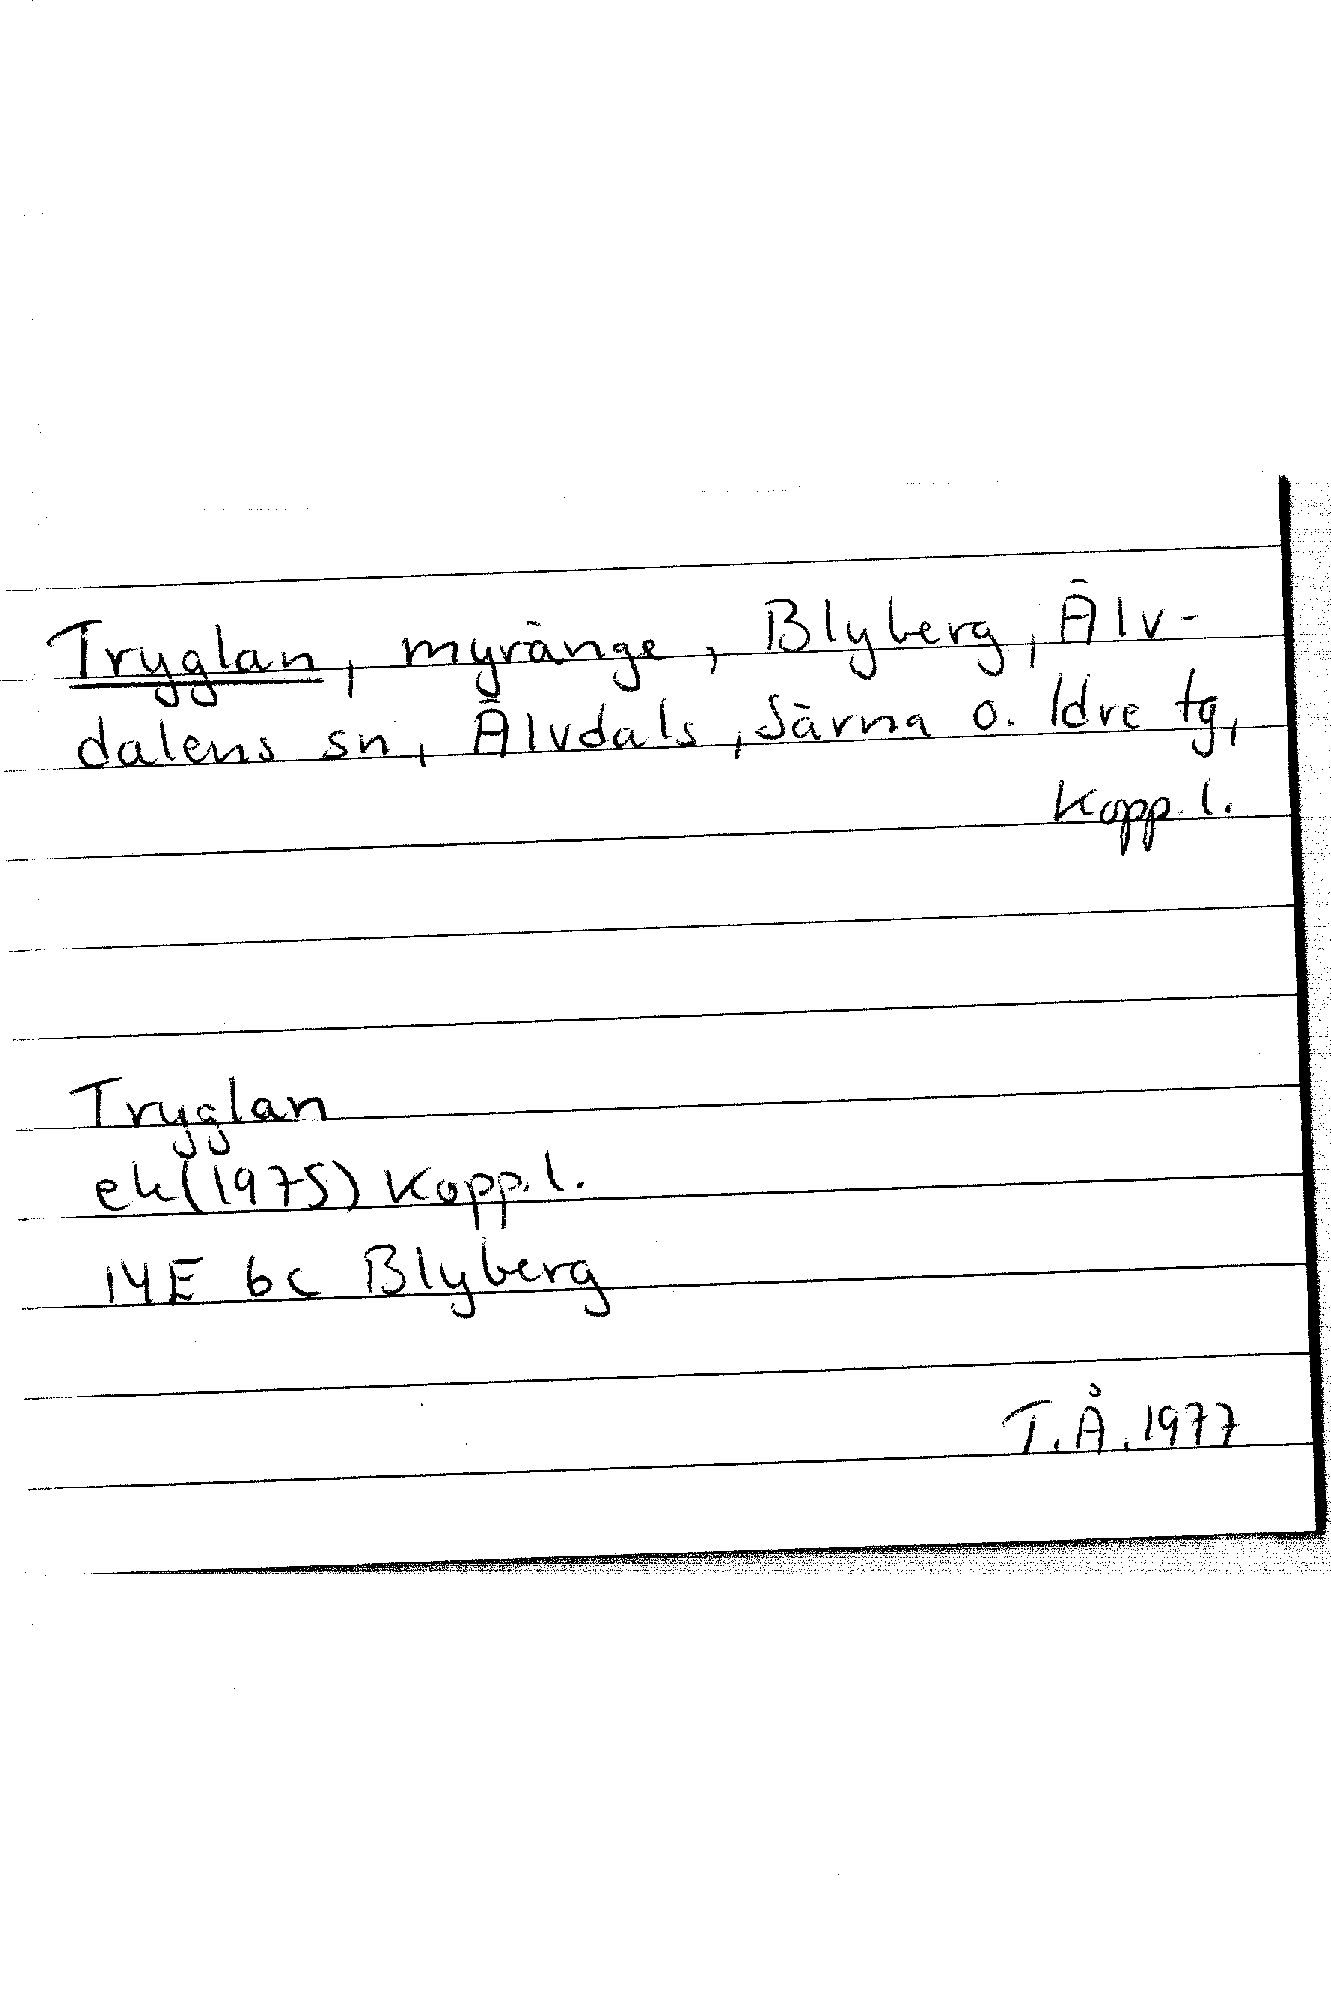 Tryglan, myränge, Blyberg, Älv-
dalens sn, Älvdals, Särna o. Idre tg,
Kopp. l.
Tryglan
ek(1975) Kopp. l.
14E 6c Blyberg
T.Å. 1977